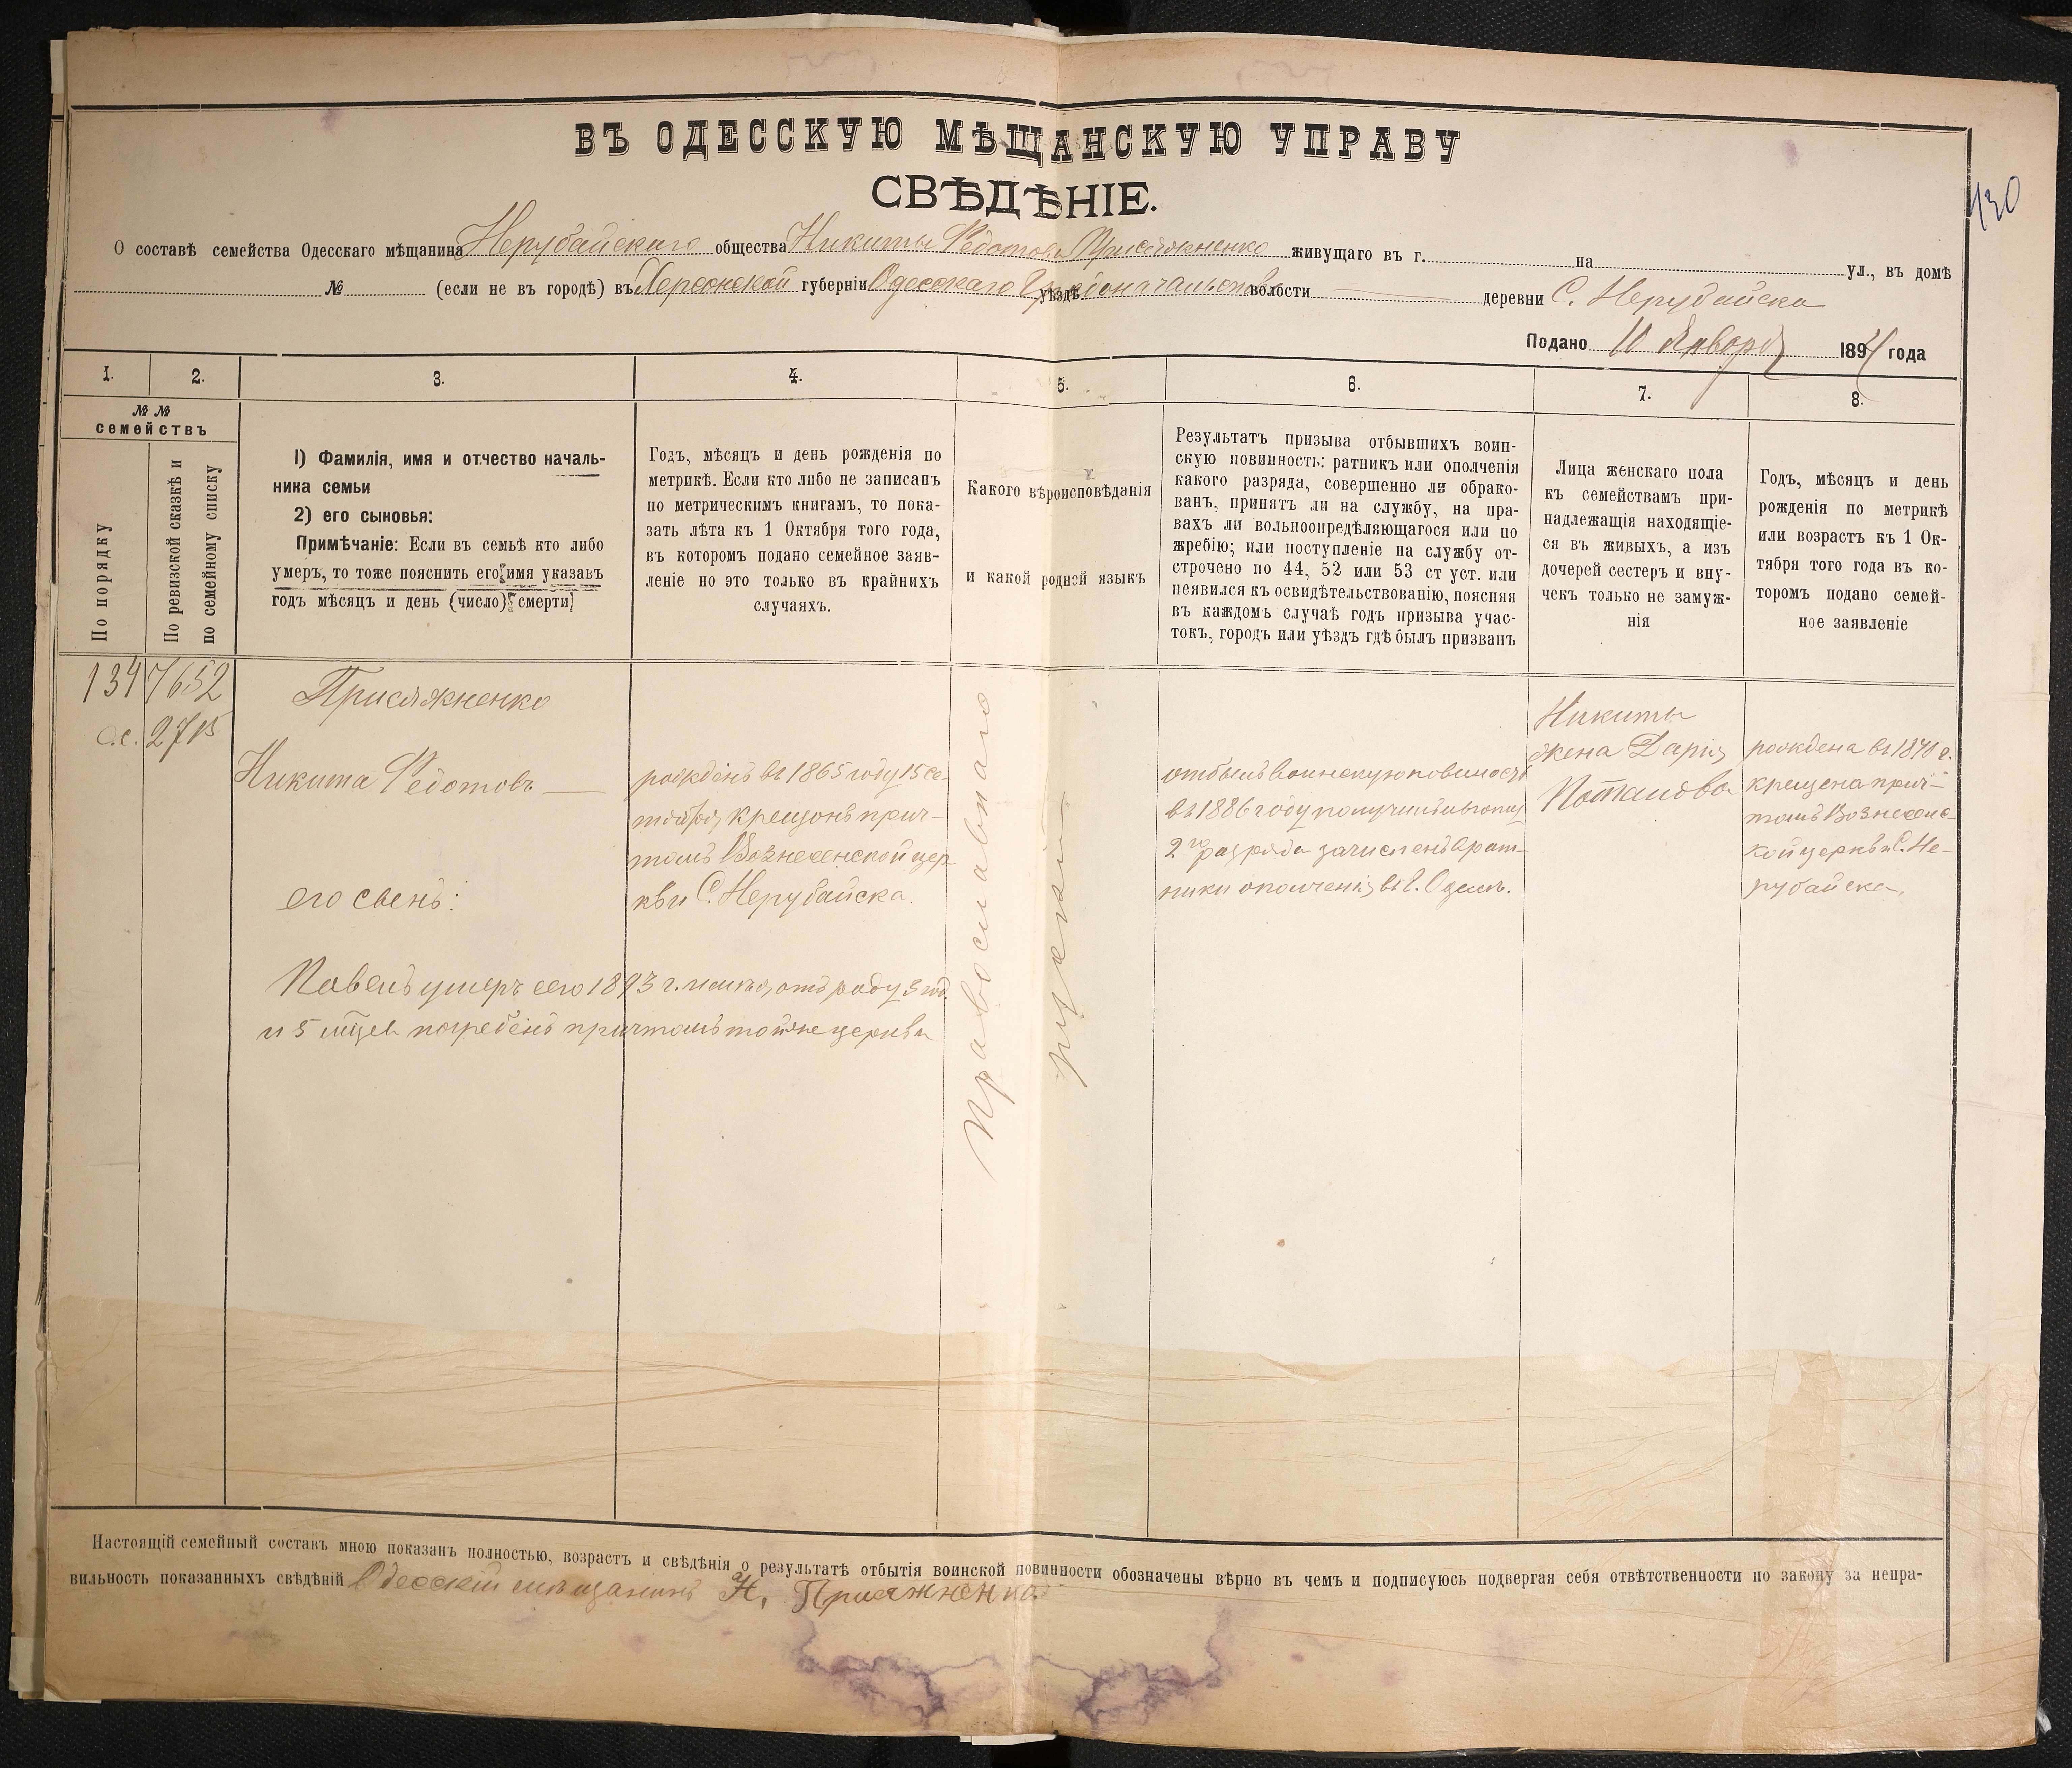 ВЪ ОДЕССКУЮ МѢЩАНСКУЮ УПРАВУ
СВѢДѢНІЕ.
430
О составѣ семейства Одесскаго мѣщанина Нерубайскаго общества Никиты Федотова Присяжненко живущаго въ г. на ул., въ домѣ
№ (если не въ городѣ) въ Херсонской губерніи Одесскаго Градоначальства уѣздѣ волости деревни С. Нерубайска
Подано 10 Января 1894 года
1. 2. 3. 4. 5. 6. 7. 8.
№ №
семействъ
По порядку
По ревизской сказкѣ и
по семейному списку
1) Фамилія, имя и отчество началь-
ника семьи
2) его сыновья:
Примѣчаніе: Если въ семьѣ кто либо
умеръ, то тоже пояснить его имя указавъ
годъ мѣсяцъ и день (число) смерти
Годъ, мѣсяцъ и день рожденія по
метрикѣ. Если кто либо не записанъ
по метрическимъ книгамъ, то пока-
зать лѣта къ 1 Октября того года,
въ которомъ подано семейное заяв-
леніе но это только въ крайнихъ
случаяхъ.
Какого вѣроисповѣданія
и какой родной языкъ
Результатъ призыва отбывшихъ воин-
скую повинность: ратникъ или ополченія
какого разряда, совершенно ли обрако-
ванъ, принятъ ли на службу, на пра-
вахъ ли вольноопредѣляющагося или по
жребію; или поступленіе на службу от-
строчено по 44, 52 или 53 ст уст. или
неявился къ освидѣтельствованію, поясняя
въ каждомъ случаѣ годъ призыва учас-
токъ, городъ или уѣздъ гдѣ былъ призванъ
Лица женскаго пола
къ семействамъ при-
надлежащія находящіе-
ся въ живыхъ, а изъ
дочерей сестеръ и вну-
чекъ только не замуж-
нія
Годъ, мѣсяцъ и день
рожденія по метрикѣ
или возрастъ къ 1 Ок-
тября того года въ ко-
торомъ подано семей-
ное заявленіе
134 7652
с.с. 2715
Присяжненко
Никита Федотовъ
его свенъ:
Павелъ умеръ сего 1893 г. отъ роду 3 год.
и 5 мѣцев погребенъ причтомъ тойже церкви
рожденъ въ 1865 году 15 се-
тября, крещонъ прич-
томъ Вознесенской цер
кви С. Нерубайска.
Православнаго
рускій
отбылъ воинскую повиность
въ 1886 году получилъ
2го разряда зачисленъ в рат-
ники ополченія въ г. Одессѣ.
Никиты
жена Дарія
Потапова
рождена въ 1870 г.
крещена прич-
томъ Вознесенс-
кой церкви С. Не-
рубайска.
Настоящій семейный составъ мною показанъ полностью, возрастъ и свѣдѣнія о результатѣ отбытія воинской повинности обозначены вѣрно въ чемъ и подписуюсь подвергая себя отвѣтственности по закону за непра-
вильность показанныхъ свѣдѣній Одесскій мѣщанинъ Н. Присяжненко